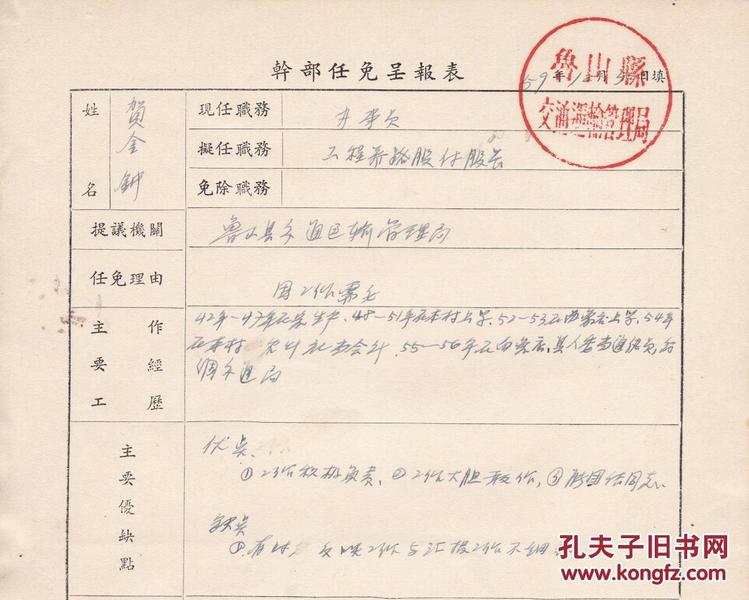 幹部任免呈報表
59年12月 日填
魯山縣
交通運輸管理局
姓名 賀金鈡
現任職務 办事员
擬任職務 工程养路股付股长
免除職務
提議機關 鲁山县交通运输管理局
任免理由 因工作需要
主要工作經歷 42年—47年在家生产、48—51年在本村上学、52—53在 上学、54年
在本村 农业社当会计、55—56年在 店、县人委当通信员、后
调交通局
主要優缺點 优点、
①工作积极负责、②工作大胆 、③能团结同志
缺点
①有时反映工作与汇报工作不细
孔夫子旧书网
www.kongfz.com